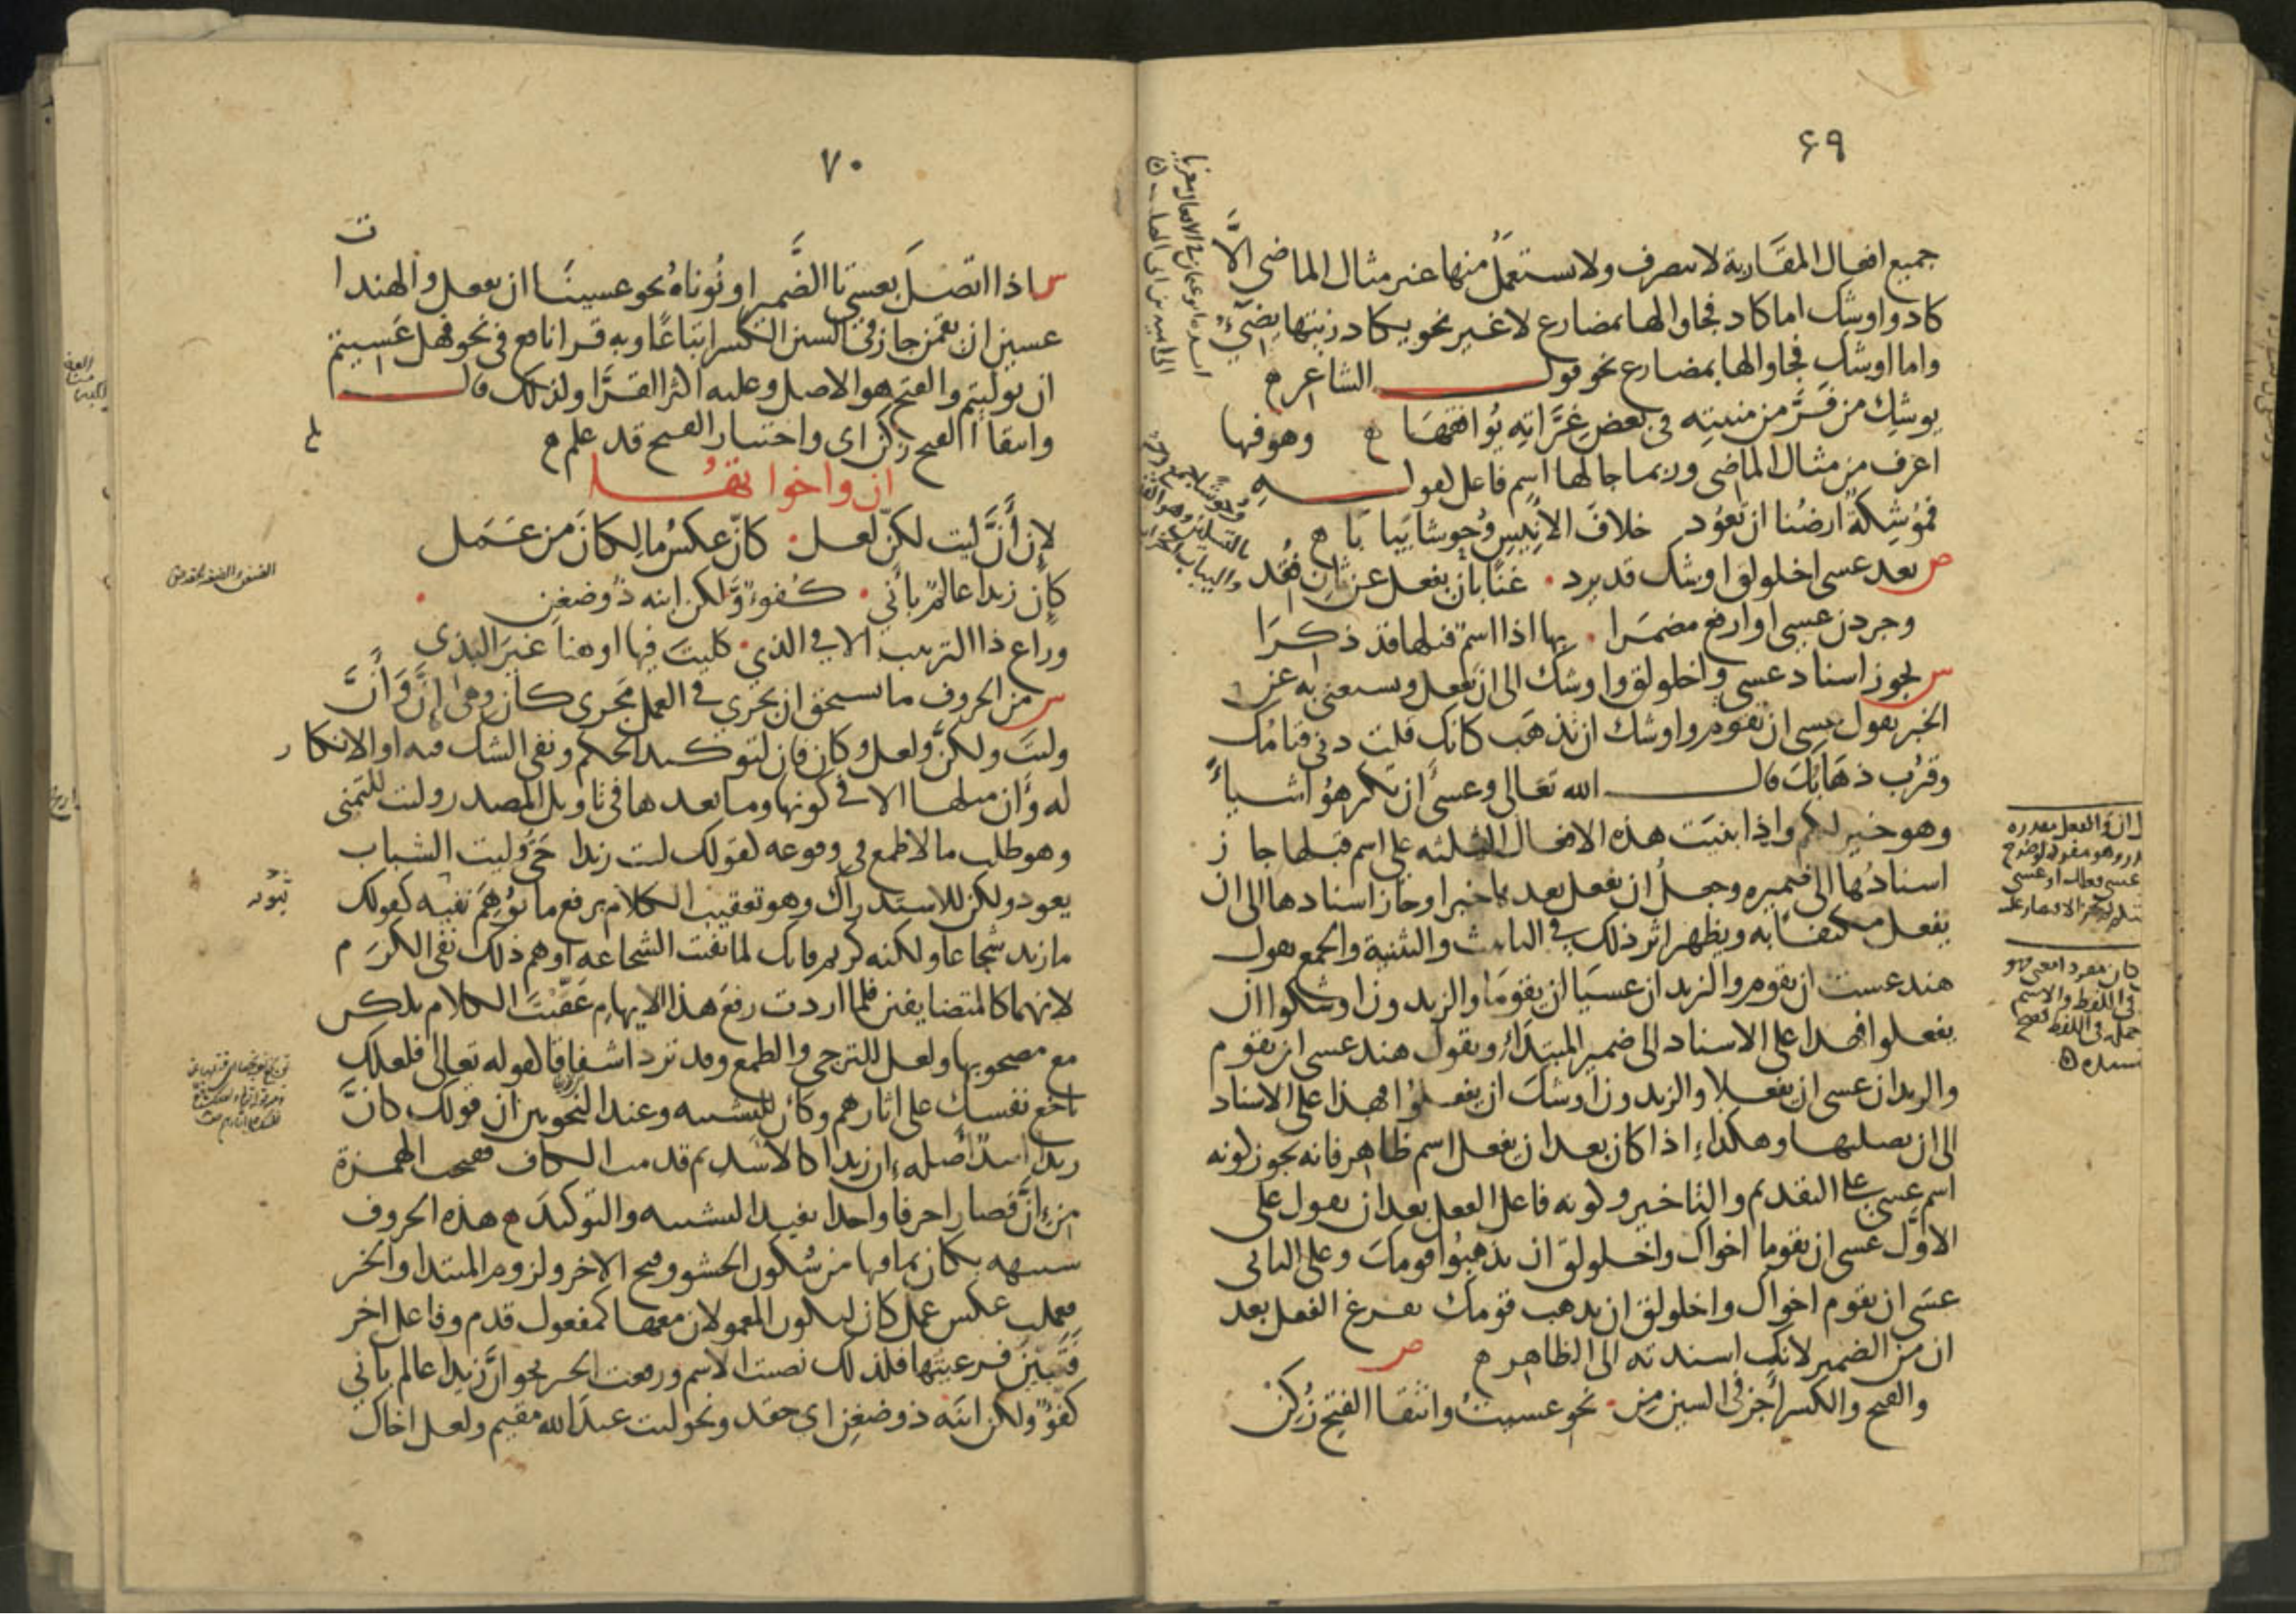 ٦٩
جميع افعال المقَاربة لا تتصرف ولا يستعمل منها غير مثال الماضي الا
كاد واوشك اما كاد فجاوا لها بمضارع لا غير نحو يكاد زيتها يضيء
واما اوشك فجاوا لها بمضارع نحو قول الشاعر
يوشك من فرّ من منيته في بعض غرّاته يوافقها وهو فيها
اعرف من مثال الماضي وربما جا لها اسم فاعل كقوله
فموشكة ارضنا ان تعود خلاف الانيس وحوشا يبابا
ص بعد عسى اخلولق اوشك قد يرد غنًا بان يفعل عن ثان فقد
وجردن عسى او ارفع مضمرا بها اذا اسم قبلها قد ذكرا
س يجوز اسناد عسى واخلولق واوشك الى ان يفعل ويستغنى به عن
الخبر تقول عسى ان تقوم واوشك ان تذهب كانك قلت دنى قيامك
وقرب ذهابك قال الله تعالى وعسى ان تكرهوا شيأ
وهو خير لكم واذا بنيت هذه الافعال الثلثه على اسم قبلها جاز
اسنادها الى ضميره وجعل ان يفعل بعدها خبرا وجاز اسنادها الى ان
يفعل مكتفا به ويظهر اثر ذلك في التانيث والتثنية والجمع تقول
هند عست ان تقوم والزيدان عسيا ان يقوما والزيدون اوشكوا ان
يفعلوا فهذا على الاسناد الى ضمير المبتدا وتقول هند عسى ان تقوم
والزيدان عسى ان يفعلا والزيدون اوشك ان يفعلوا فهذا على الاسناد
الى ان بصلتها وهكذا اذا كان بعد ان يفعل اسم ظاهر فانه يجوز كونه
اسم عسى على التقديم والتاخير وكونه فاعل الفعل بعد ان تقول على
الاول عسى ان يقوما اخواك واخلولق ان يذهبوا قومك وعلى الثاني
عسى ان يقوم اخواك واخلولق ان يذهب قومك تفرغ الفعل بعد
ان من الضمير لانك اسندته الى الظاهر ص
والفتح والكسر اجز في السين من نحو عسيت وانتقا الفتح زكن
٧٠
س اذا اتصل بعسى تا الضمير او نوناه نحو عسينا ان نفعل والهندات
عسين ان يقمن جاز في السين الكسر اتباعًا وبه قرا نافع في نحو فهل عسيتم
ان توليتم والفتح هو الاصل وعليه اكثر القرّا ولذلك قال
وانتقا الفتح زكن اى واختيار الفتح قد علم
ان واخواتها
لانّ أنّ ليت لكنّ لعل كانّ عكس ما لكان من عمل
كانّ زيدا عالم بأني كفوء ولكن ابنه ذو ضغن
وراع ذا الترتيب الا في الذي كليت فيها او هنا غير البذى
س من الحروف ما يستحق ان يجري في العمل مجرى كان وهى إنّ وأنّ
وليت ولكنّ ولعل وكان فان لتوكيد الحكم ونفى الشك فيه او الانكار
له وأن مثلها الا في كونها وما بعدها في تاويل المصدر وليت للتمنى
وهو طلب ما لا طمع في وقوعه كقولك ليت زيدا حيّ وليت الشباب
يعود ولكن للاستدراك وهو تعقيب الكلام برفع ما توهم نفيه كقولك
ما زيد شجاعا ولكنه كريم فانك لما نفيت الشجاعه اوهم ذلك نفى الكرم
لانهما كالمتضايفين فلما اردت رفع هذا الايهام عقّبت الكلام بلكن
مع مصحوبها ولعل للترجى والطمع وقد ترد اشفاقا كقوله تعالى فلعلك
باخع نفسك على اثارهم وكأن للتشبيه وعند النحويين ان قولك كانّ
زيدا اسد اصله ان زيدا كالاسد ثم قدمت الكاف ففتحت الهمزة
من انّ فصارا حرفا واحدا يفيد التشبيه والتوكيد هذه الحروف
شبيهه بكان بما فيها من سكون الحشو وفتح الاخر ولزوم المبتدا والخبر
فعملت عكس عمل كان ليكون المعمولان معها كمفعول قدم وفاعل اخر
فتبين فرعيتها فلذلك نصبت الاسم ورفعت الخبر نحو انّ زيدا عالم باني
كفؤ ولكن ابنه ذو ضغن اي حقد ونحو ليت عبد الله مقيم ولعل اخاك